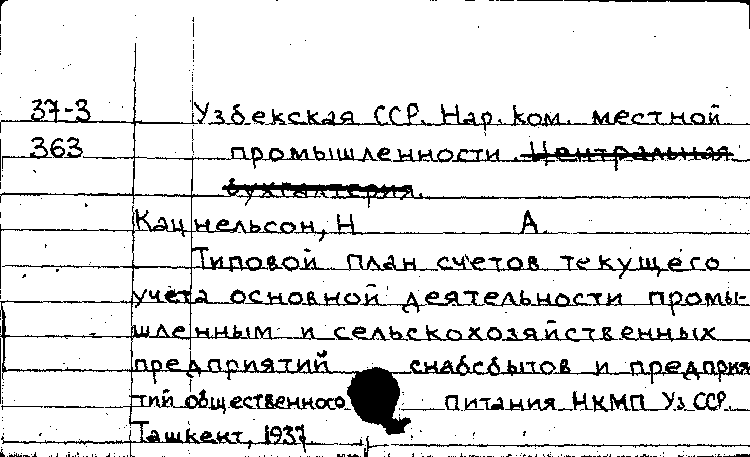 37-3 Узбекская ССР. Нар. ком. местной
363 промышленности. Центральная
бухгалтерия.
Кацнельсон, Н А.
Типовой план счетов текущего
учета основной деятельности промы-
шленным и сельскохозяйственных
предприятий снабсбытов и предприя
тий общественного питания НКМП УзССР.
Ташкент, 1937